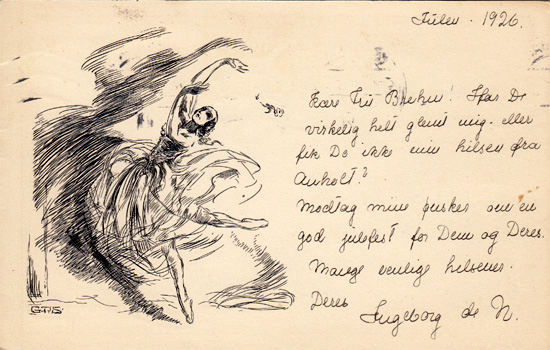 Julen. 1926.
Kære Fru Brehm! Har De
virkelig helt glemt mig. eller
fik De ikke min hilsen fra
Anholt?
Modtag mine ønsker om en
god julefest for Dem og Deres.
Mange venlige hilsener.
Deres
Ingeborg de N.